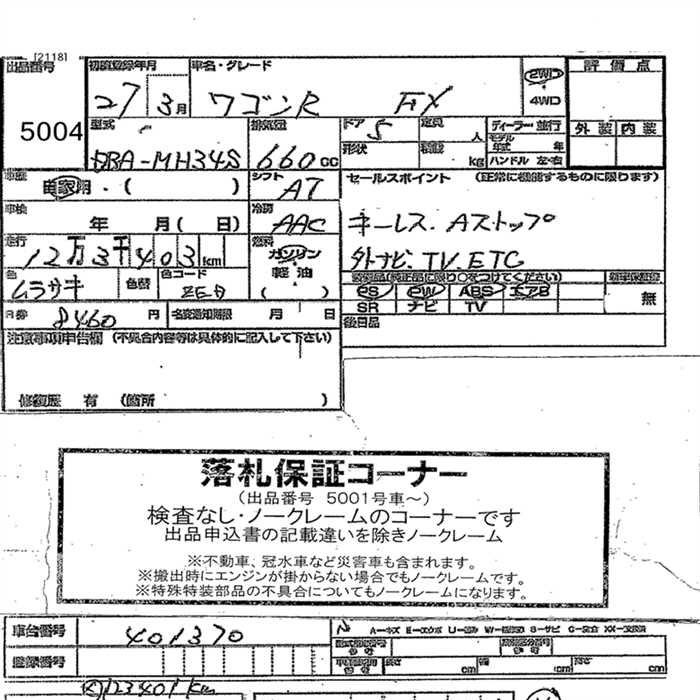 [2118]
出品番号 初度登録年月 車名・グレード 2WD 評価点
27 3月 ワゴンR FX 4WD
5004 型式 排気量 ドア 5 定員 人 ディーラー・並行 外装 内装
DBA-MH34S 660cc 形状 積載 kg モデル年式 年 ハンドル 左・右
車歴 自家用・( ) シフト AT セールスポイント (正常に機能するものに限ります)
車検 年 月( 日) 冷房 AAC キーレス.Aストップ
走行 12万3千403km 燃料 ガソリン 外ナビ.TV.ETC
色 ムラサキ 色替 色コード 軽油 ( )
PS PW ABS エアB 無
SR ナビ TV
R券 8460円 名変通知期限 月 日 後日品
注意事項申告欄 (不具合内容等は具体的に記入して下さい)
修復歴 有 (箇所 )
落札保証コーナー
(出品番号 5001号車~)
検査なし・ノークレームのコーナーです
出品申込書の記載違いを除きノークレーム
※不動車、冠水車など災害車も含まれます。
※搬出時にエンジンが掛からない場合でもノークレームです。
※特殊特装部品の不具合についてもノークレームになります。
車台番号 401370
登録番号 cm cm cm
123401km